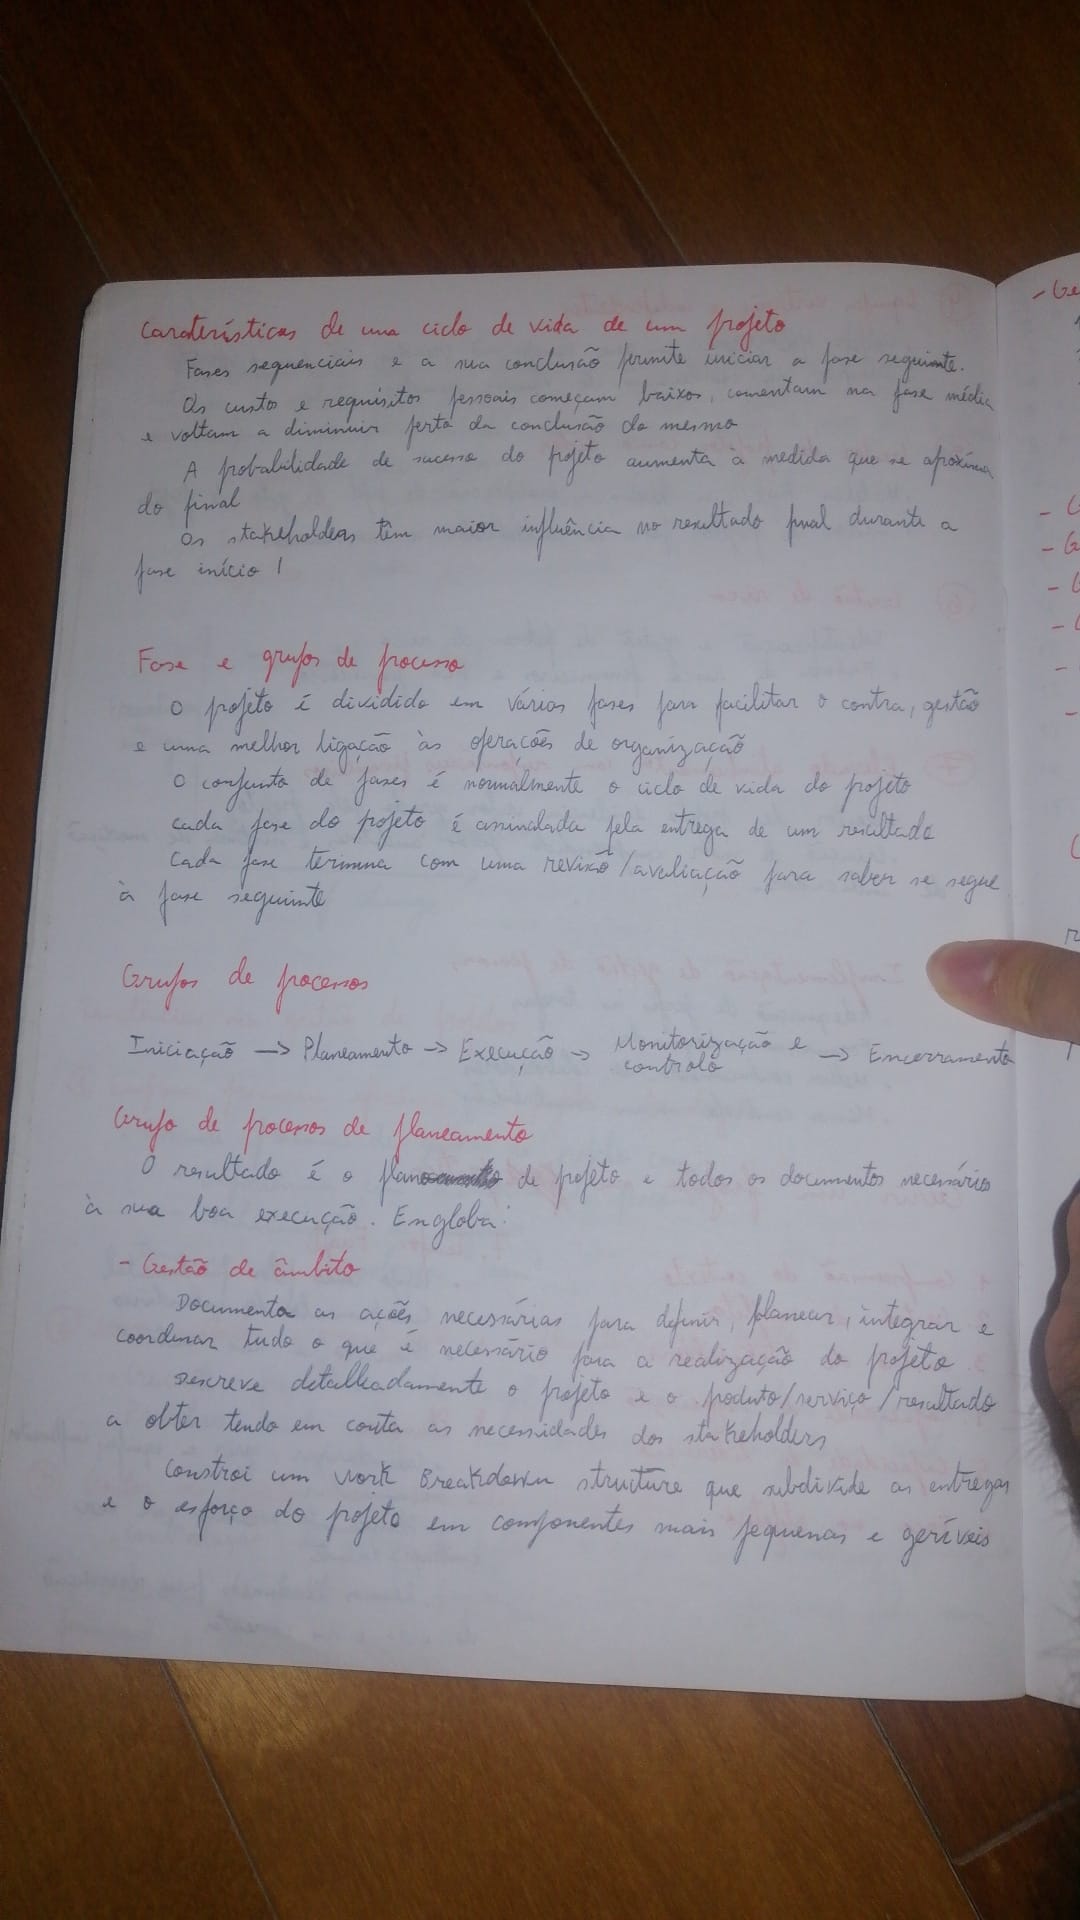 Caraterísticas de uma ciclo de vida de um projeto
Fases sequenciais e a sua conclusão permite iniciar a fase seguinte.
Os custos e requisitos pessoais começam baixos, aumentam na fase média
e voltam a diminuir perto da conclusão do mesmo
A probabilidade de sucesso do projeto aumenta à medida que se aproxima
do final
Os stakeholders têm maior influência no resultado final durante a
fase início!
Fase e grupos de processo
O projeto é dividido em várias fases para facilitar o contra, gestão
e uma melhor ligação às operações de organização
O conjunto de fases é normalmente o ciclo de vida do projeto
cada fase do projeto é assinalada pela entrega de um resultado
Cada fase termina com uma revisão/avaliação para saber se segue
à fase seguinte
Grupos de processos
Iniciação -> Planeamento -> Execução -> Monitorização e -> Encerramento
controlo
Grupo de processos de planeamento
O resultado é o plano de projeto e todos os documentos necessários
à sua boa execução. Engloba:
- Gestão de âmbito
Documenta as ações necessárias para definir, planear, integrar e
coordenar tudo o que é necessário para a realização do projeto
Descreve detalhadamente o projeto e o produto/serviço/resultado
a obter tendo em conta as necessidades dos stakeholders
Constroi um Work Breakdown structure que subdivide as entregas
e o esforço do projeto em componentes mais pequenas e geríveis